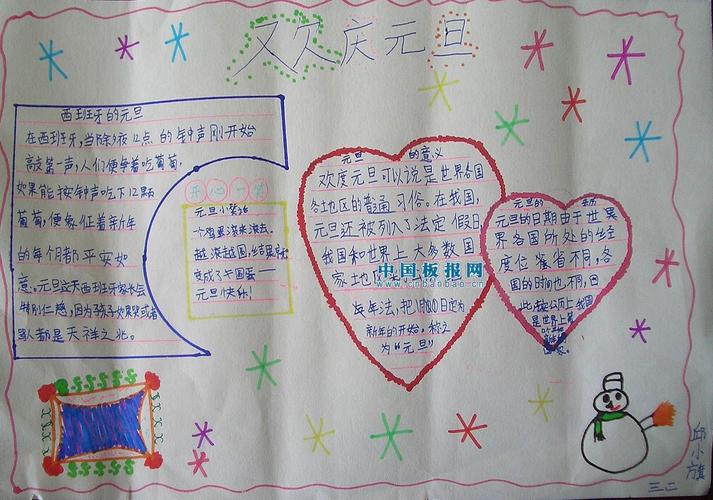 欢庆元旦
西班牙的元旦
在西班牙,当除夕夜12点的钟声刚开始
敲第一声,人们便争着吃葡萄,
如果能按钟声吃下12颗
葡萄,便象征着新年
的每个都平安如
意。元旦这天西班牙家长会
特别仁慈,因为孩子
都是不祥之兆。
开心一笑
元旦小笑话
一个鸡蛋滚来滚去,
越滚越圆,结果
变成了牛国蛋——
元旦快乐!
元旦的意义
欢度元旦可以说是世界各国
各地区的普遍习俗。在我国,
元旦还被列入了法定假日
我国和世界上大多数国
家土地
年法,把1月00日定为
新年的开始,称之
为“元旦”
元旦的
元旦的日期由于世界
界各国所处的经
度位置省不同,各
国的时间也不同,因
此,按公历上我国
是世界上第
中国板报网
www.cnbanbao.cn
邱小方真
三、二